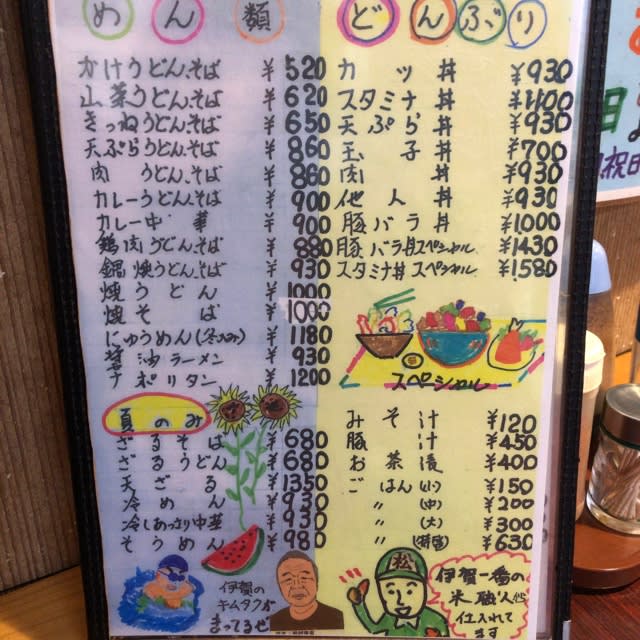 めん類
かけうどん、そば ¥520
山菜うどん、そば ¥620
きつねうどん、そば ¥650
天ぷらうどん、そば ¥860
肉うどん、そば ¥860
カレーうどん、そば ¥900
カレー中華 ¥900
鶏肉うどん、そば ¥880
鍋焼うどん、そば ¥930
焼うどん ¥1000
焼そば ¥1000
にゅうめん(冬のみ) ¥1180
醤油ラーメン ¥930
ナポリタン ¥1200
夏のみ
ざるそば ¥680
ざるうどん ¥680
天ざる ¥1350
冷めん ¥930
冷しあっさり中華 ¥930
そうめん ¥980
伊賀の
キムタクが
まってるぜ
どんぶり
カツ丼 ¥930
スタミナ丼 ¥1100
天ぷら丼 ¥930
玉子丼 ¥700
肉丼 ¥930
他人丼 ¥930
豚バラ丼 ¥1000
豚バラ丼スペシャル ¥1430
スタミナ丼スペシャル ¥1580
スペシャル
みそ汁 ¥120
豚汁 ¥450
お茶漬 ¥400
ごはん(小) ¥150
〃(中) ¥200
〃(大) ¥300
〃 ¥630
松
伊賀一番の
米
仕入れて
ます
日
祝日